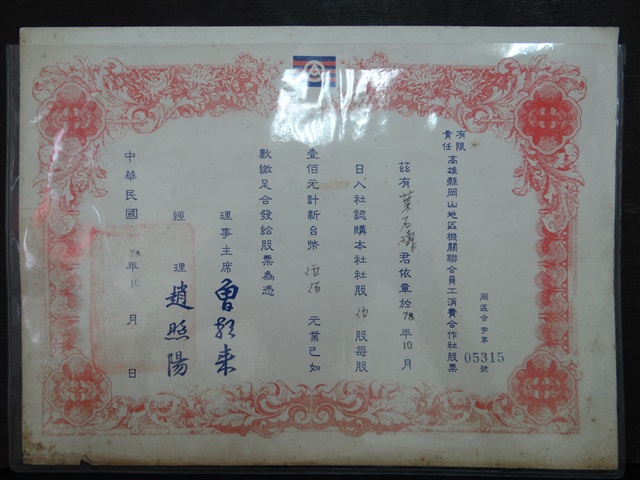 岡區合字第05315號
有限責任高雄縣岡山地區機關聯合員工消費合作社股票
茲有葉石濤君依章於78年10月
日入社認購本社社股伍股每股
壹佰元計新台幣伍佰元業已如
數繳足合發給股票為憑
理事主席
經理趙照陽
中華民國78年10月日